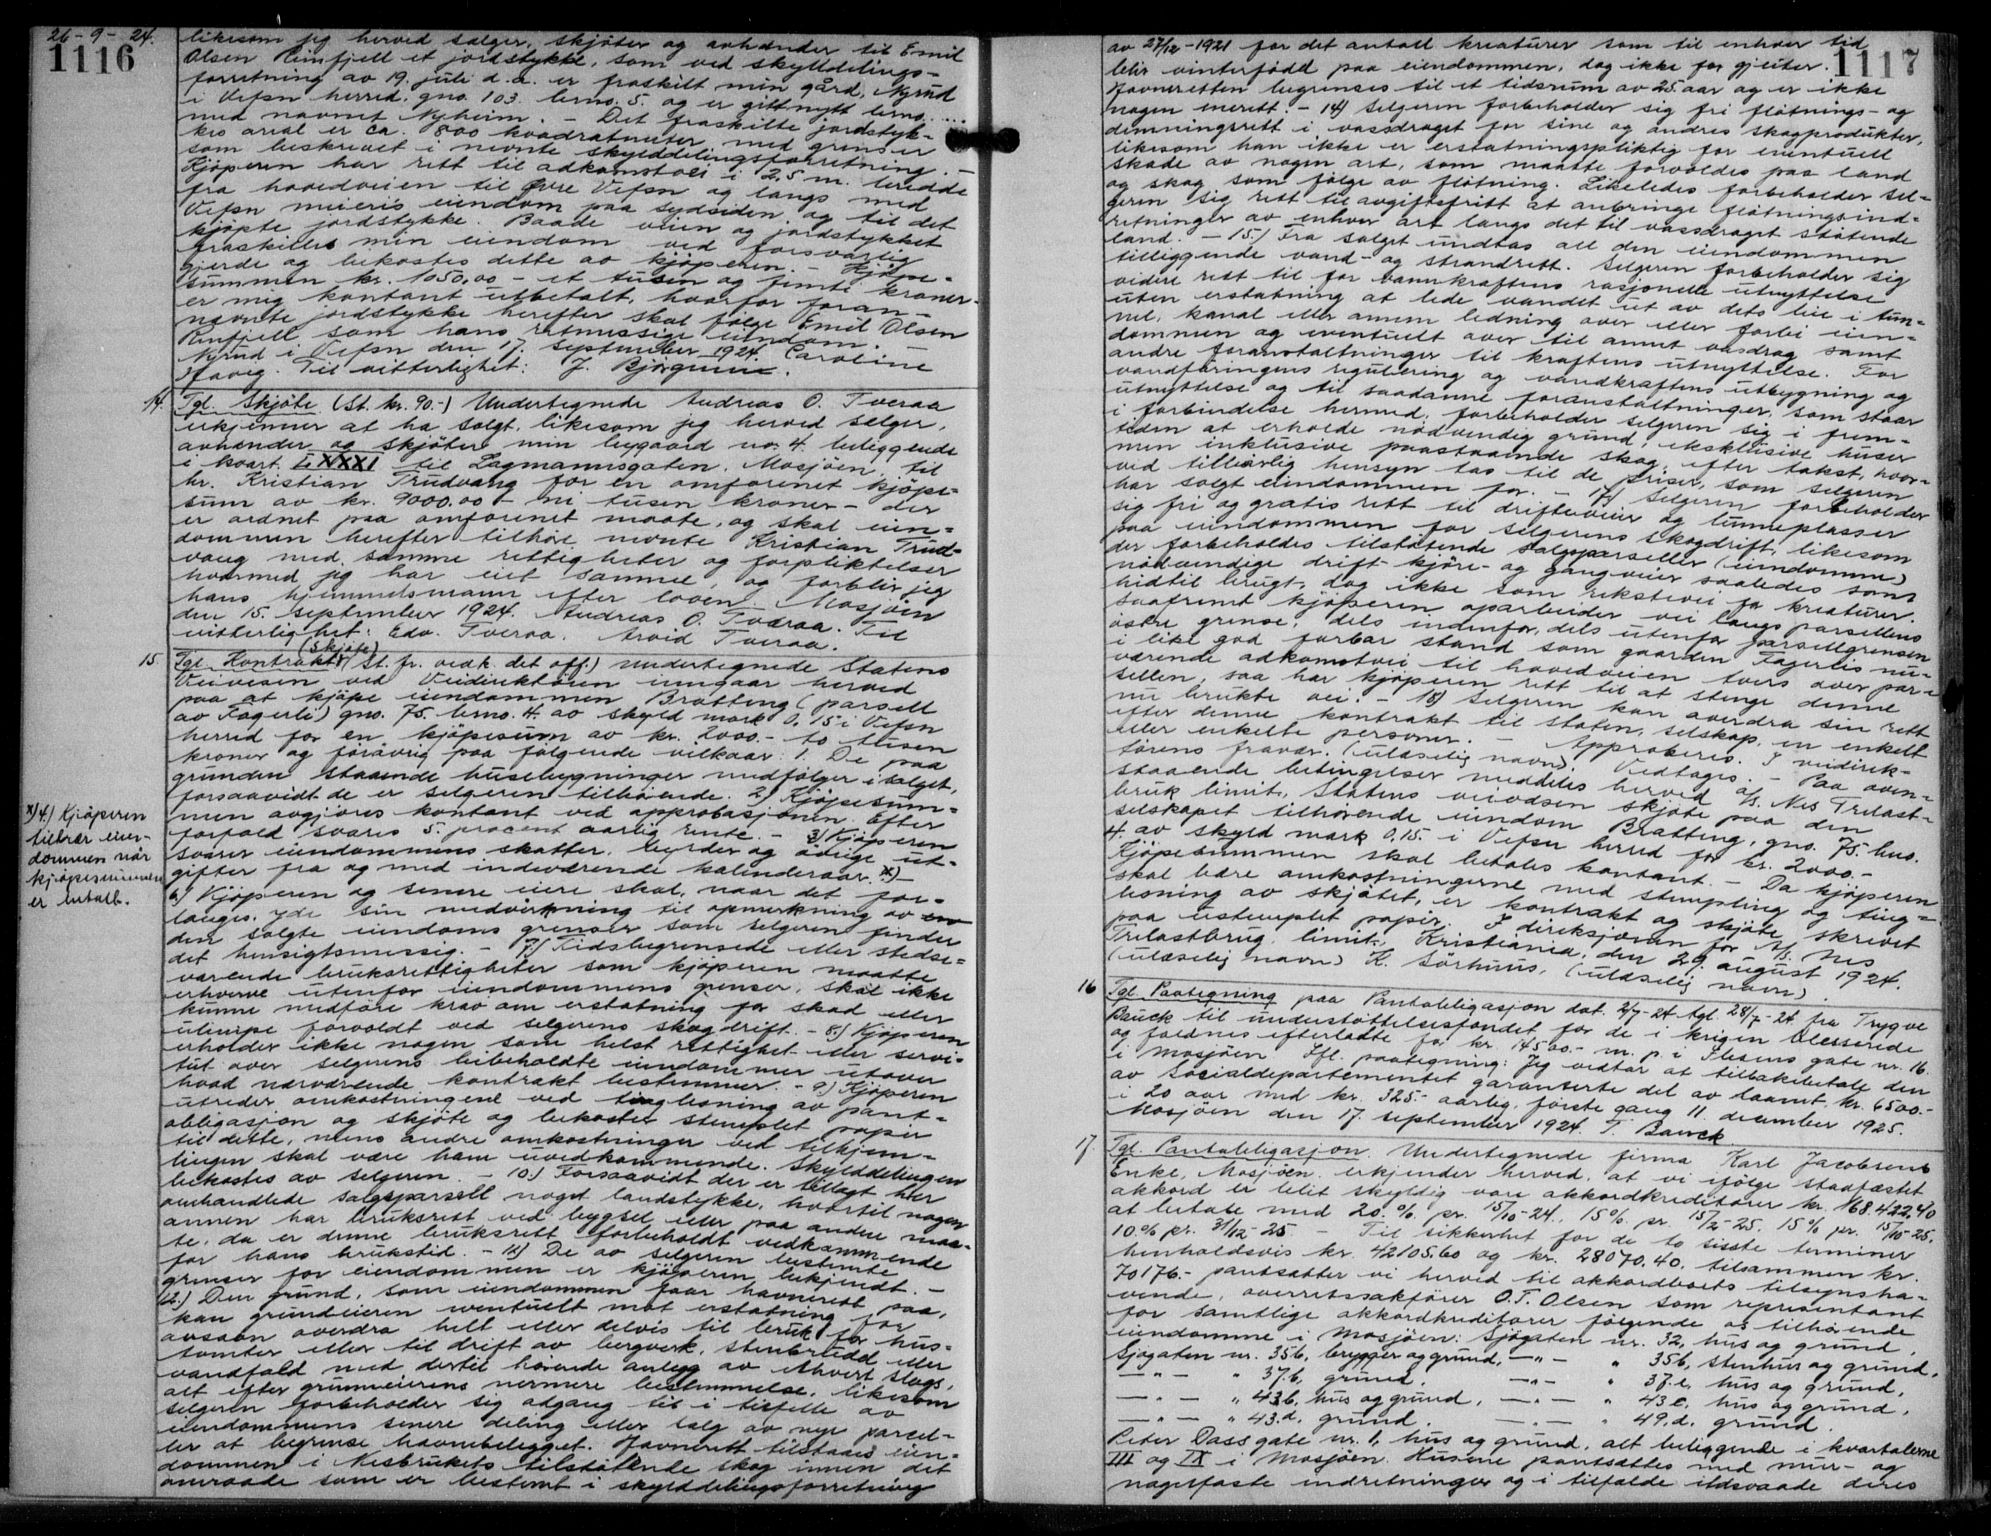 26-9-24.
1116
likesom jeg herved sælger, skjöter og avhænder til Emil
Olsen Rimfjell et jordstykke, som ved skylddelings-
forretning av 19. juli d.a. er fraskilt min gård, Nyrud
i Vefsn herred, gno. 103. brno. 5. og er gitt nytt brno....
med navnet Nyheim. - Det fraskilte jordstyk-
kes areal er ca. 800 kvadratmeter med grenser
som beskrevet i nevnte skylddelingsforretning. -
Kjöperen har rett til adkomstvei i 2,5 m. bredde
fra hovedveien til Övre Vefsn og langs med
Vefsn meieris eiendom paa sydsiden og til det
kjöpte jordstykke. Baade veien og jordstykket
fraskilles min eiendom ved forsvarlig
gjerde og bekostes dette av kjöperen. - Kjöpe-
summen kr. 1050,00 - et tusen og femti kroner -
er mig kontant utbetalt, hvorfor foran-
nævnte jordstykke herefter skal følge Emil Olsen
Rimfjell som hans retmessige eiendom.
Nyrud i Vefsn den 17. september 1924. Caroline
Til vitterlighet: J. Björgum.
14. Tgl. Skjöte (St. kr. 90.-) Undertegnede Andreas O. Tveraa
erkjenner at ha solgt, likesom jeg herved selger,
avhender og skjöter min bygaard no. 4 beliggende
i kvart. XXXI til Lagmannsgaten, Mosjöen, til
hr. Kristian Trudvang for en omforenet kjöpe-
sum av kr. 9000.00 - ni tusen kroner - der
er ordnet paa omforenet maate, og skal eien-
dommen herefter tilhöre nevnte Kristian Trud-
vang med samme rettigheter og forpliktelser
hvormed jeg har eiet samme, og forblir jeg
hans hjemmelsmann efter loven. Mosjöen
den 15. september 1924. Andreas O. Tveraa. Til
vitterlighet: Edv. Tveraa. Arvid Tveraa.
(Skjöte)
15. Tgl. Kontrakt (St. fr. vedk. det off.) Undertegnede Statens
Veivesen ved Veidirektören inngaar herved
paa at kjöpe eiendommen Bratteng (parsell
av Fagerli) gno. 75. brno. 4. av skyld mark 0,15 i Vefsn
herred for en kjöpesum av kr. 2000.- to tusen
kroner og forövrig paa følgende vilkaar: 1. De paa
grunden staaende husebygninger medfølger i salget,
forsaavidt de er selgeren tilhörende. 2) Kjöpesum-
men avgjöres kontant ved approbasjonen. Efter
forfald svares 5 procent aarlig rente. - 3) Kjöperen
svarer eiendommens skatter, byrder og övrige ut-
gifter fra og med indeværende kalenderaar. x) -
x) 4.) Kjöperen
tiltrær eien-
dommen når
kjöpesummen
er betalt.
6.) Kjöperen og senere eiere skal, naar det for-
langes, yde sin medvirkning til opmerkning av
den solgte eiendoms grenser som selgeren finder
det hensigtsmessig. - 7.) Tidsbegrensede eller stedse-
varende bruksrettigheter som kjöperen maatte
erhverve utenfor eiendommens grenser, skal ikke
kunne medføre krav om erstatning for skad eller
ulempe forvoldt ved selgerens skogdrift. - 8.) Kjöperen
erholder ikke nogen som helst rettighet eller servi-
tut over selgerens bibeholdte eiendommer utover
hvad nærværende kontrakt bestemmer. - 9.) Kjöperen
utreder omkostningene ved tinglesning av pant-
obligasjon og skjöte og bekoster stemplet papir
til dette, mens andre omkostninger ved tilhjem-
lingen skal være ham uvedkommende. Skylddelingen
bekostes av selgeren. - 10.) Forsaavidt der er tillagt her
omhandlede salgsparsell noget landstykke, hvortil nogen
annen har bruksrett ved bygsel eller paa anden maa-
te, da er denne bruksrett forbeholdt vedkommende
for hans brukstid. - 11.) De av selgeren bestemte
grenser for eiendommen er kjöperen bekjendt. -
12.) Den grund, som eiendommen faar havnerett paa,
kan grundeieren eventuelt mot erstatning for
avsavn overdra helt eller delvis til bruk for hus-
tomter eller til drift av bergverk, stenbrudd eller
vandfald med dertil hörende anlegg av ethvert slags,
alt efter grunneierens nærmere bestemmelse, likesom
selgeren forbeholder sig adgang til i tilfelle av
eiendommens senere deling eller salg av nye parcel-
ler at begrense havnebelegget. Havnerett tilstaaes eien-
dommen i Nesbrukets tilstötende skog innen det
omraade som er bestemt i skylddelingsforretning
1117
av 27/12-1921 for det antall kreaturer som til enhver tid
blir vinterfødd paa eiendommen, dog ikke for gjeiter.
Havneretten begrenses til et tidsrum av 25 aar og er ikke
nogen enerett. - 14) Selgeren forbeholder sig fri flötnings- og
dæmningsrett i vassdraget for sine og andres skogprodukter,
likesom han ikke er erstatningspliktig for eventuell
skade av nogen art, som maatte forvoldes paa land
og skog som følge av flötning. Likeledes forbeholder sel-
geren sig rett til avgiftsfritt at anbringe flötningsind-
retninger av enhver art langs det til vassdraget stötende
land. - 15.) Fra salget undtas all den eiendommen
tilliggende vand- og strandrett. Selgeren forbeholder sig
videre rett til for vannkraftens rasjonelle utnyttelse
uten erstatning at lede vandet ut av dets leie i tun-
nel, kanal eller annen ledning over eller forbi eien-
dommen og eventuelt over til annet vasdrag samt
andre foranstaltninger til kraftens utnyttelse. For
vandføringens regulering og vandkraftens utbygning og
utnyttelse og til saadanne foranstaltninger, som staar
i forbindelse hermed, forbeholder selgeren sig i frem-
tiden at erholde nödvendig grund, eksklusive huser
men inklusive paastaaende skog, efter takst, hvor-
ved tilbörlig hensyn tas til de priser, som selgeren
har solgt eiendommen for. - 17) Selgeren forbeholder
sig fri og gratis rett til driftsveier og lunneplasser
paa eiendommen for selgerens skogdrift, likesom
der forbeholdes tilstötende salgsparseller (eiendomme)
nödvendige drift- kjöre- og gangveier saaledes som
hidtil brugt, dog ikke som rekstevei for kreaturer.
Saafremt kjöperen oparbeider vei langs parsellens
östre grense, dels indenfor, dels utenfor parsellgrensen
i like god farbar stand som gaarden Fagerlis nu-
værende adkomstvei til hovedveien tvers over par-
sellen, saa har kjöperen rett til at stenge denne
nu brukte vei. - 18) Selgeren kan overdra sin rett
efter denne kontrakt til staten, selskap, en enkelt
eller enkelte personer. - Approberes. I veidirek-
törens fravær. (ulæselig navn). Vedtages. - Paa oven-
staaende betingelser meddeles herved A/S. Nes Trelast-
bruk limit. Statens veivæsen skjöte paa den
selskapet tilhörende eiendom Bratteng, gno. 75. bno.
4. av skyld mark 0,15. i Vefsn herred for kr. 2000.-
Kjöpesummen skal betales kontant. - Da kjöperen
skal bære omkostningerne med stempling og ting-
lesning av skjötet, er kontrakt og skjöte skrevet
paa ustemplet papir. I direksjonen for A/S. Nes
Trelastbrug limit, Kristiania, den 29. august 1924.
(ulæselig navn) K. Sörhuus, (ulæselig navn).
16 Tgl. Paategning paa Pantobligasjon dat. 2/7-24 tgl. 28/7-24 fra Trygve
Bauck til understöttelsesfondet for de i krigen blesserede
og faldnes efterladte for kr. 14500.- m. p. i Elisens gate nr. 16.
i Mosjöen. Sfl. paategning: Jeg vedtar at tilbakebetale den
av Socialdepartementet garanterte del av laanet kr. 6500.-
i 20 aar med kr. 325.- aarlig, første gang 11. december 1925.
Mosjöen den 17. september 1924. T. Bauck
17. Tgl. Pantobligasjon. Undertegnede firma Karl Jacobsens
Enke, Mosjöen, erkjender herved, at vi ifølge stadfæstet
akkord er blit skyldig vore akkordkreditorer kr. 168.422,40
at betale med 20 % pr. 15/10-24, 15 % pr. 15/2-25, 15 % pr. 15/10-25,
10 % pr. 31/12-25. - Til sikkerhet for de to sisste terminer
henholdsvis kr. 42105,60 og kr. 28070,40, tilsammen kr.
70176.- pantsætter vi herved til akkordboets tilsynsha-
vende, overretssakfører O.T. Olsen som representant
for samtlige akkordkreditorer følgende os tilhörende
eiendomme i Mosjöen: Sjögaten nr. 32, hus og grund,
Sjögaten nr. 35b, brygger og grund, —"— " 35b, stenhus og grund,
—"— " 37.b, grund, —"— " 37.c, hus og grund,
—"— " 43b, hus og grund, —"— " 43c, hus og grund,
—"— " 43.d, grund, —"— " 49.d. grund,
Peter Dassgate nr. 1, hus og grund, alt beliggende i kvartalerne
III og IX i Mosjöen. Husene pantsættes med mur- og
nagelfaste indretninger og i tilfælde ildsvaade deres